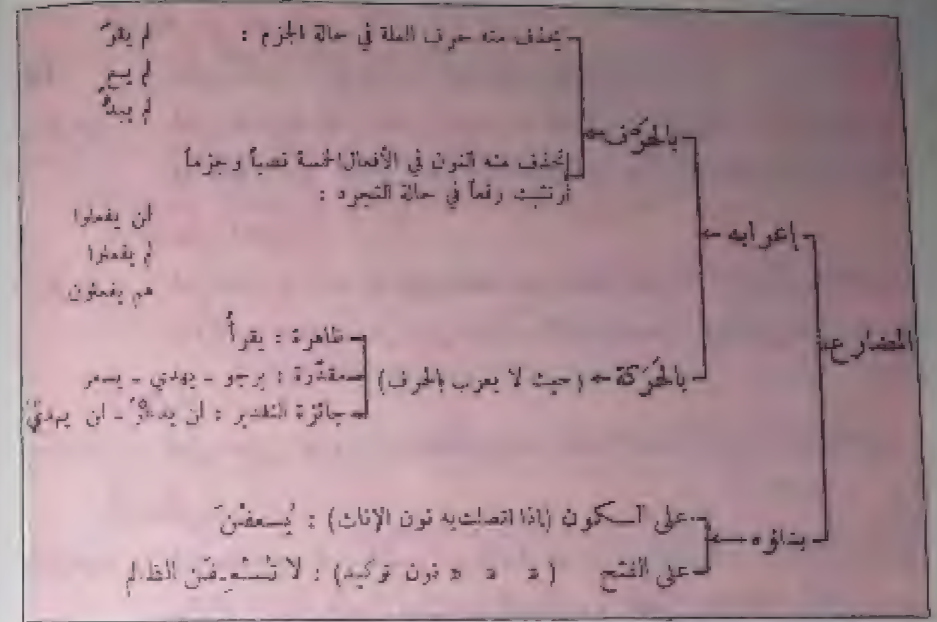 المضارع
إعرابه
بالحرف
يحذف منه حرف العلة في حالة الجزم :
لم يقرَ
لم يسعَ
لم يبدُ
تحذف منه النون في الأفعال الخمسة نصباً وجزماً
أو تثبت رفعاً في حالة التجرد :
لن يفعلوا
لم يفعلوا
هم يفعلون
بالحركة (حيث لا يعرب بالحرف)
ظاهرة : يقرأُ
مقدّرة : يرجو - يهدي -
جائزة التقدير : لن - لن يهديَ
بناؤه
على السكون (إذا اتصلت به نون الإناث) : يُسعفْنَ
على الفتح ( د د د نون توكيد) : لا تُسْعِفَن الظالم